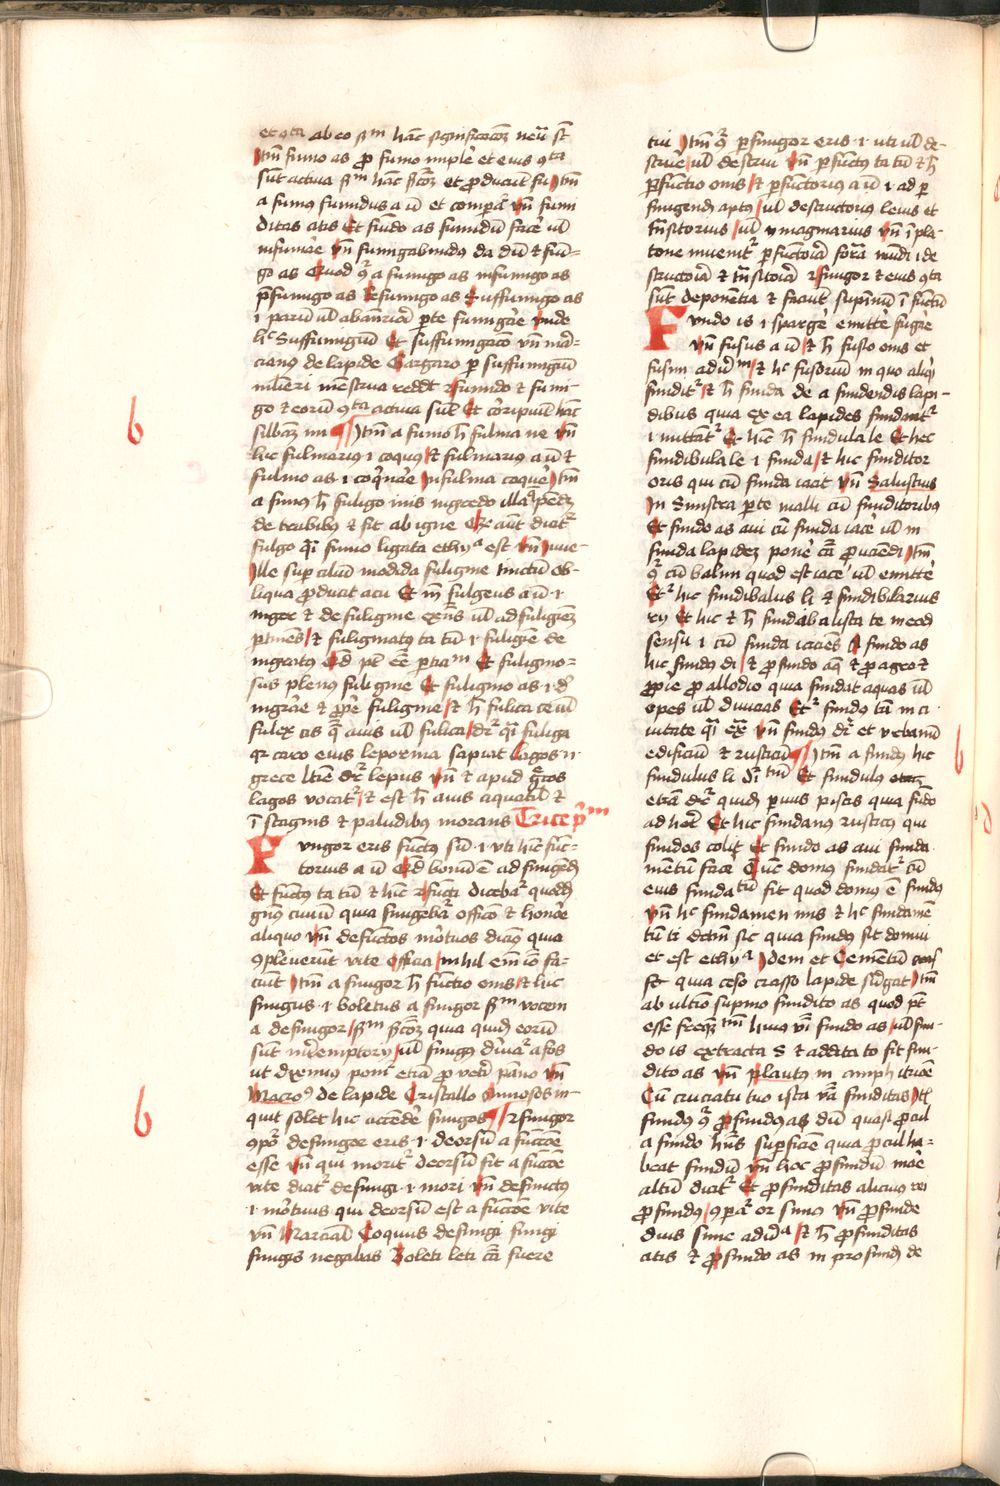 et ꝯta ab eo sm hac significacoem neut st
Itm fumo as p fumo imple et eius ꝯta
sunt actiua sm hac scoem et producunt fu Itm
a fumus fumidus a um et compar vn fumi
ditas atis Et fumido as fumidum face ul
infumare vn fumigabundus da dum et fumi=
go as Quod qr a fumigo as infumigo as
pfumigo as Refumigo as Suffumigo as
i parum ul abancia parte fumigare unde
hc Suffumigium Et suffumigaco vn mar=
cianus de lapide Gargaro p suffumigium
mulieri menstrua reddit et fumido et fumi
go et eorum ꝯta actiua sunt Et corripiunt hac
silbam mi Itm a fumo h fulina ne vn
hic fulinarius i coquus et fulinarius a um et
fulino as i coquinare Infulina coque Itm
a fumus h fuligo inis nigredo illa pendens
de trabibus et fit ab igne Et aut dicitr
fuligo qsi fumo ligata ethya est vn Juue-
Ille supcilium madida fuligine tinctum ob-
liqua producit acu Et in fuligeus a um i
niger et de fuligine exns ul ad fuliginem
ptinens et fuliginatus ta tum i fuligine de
nigratus Et pl esse ptm Et fuligino=
sus plenus fuligine Et fuligino as i de
nigrare et prope fuligine et h fulica ce ul
fulex cis quedam auis ul fulica dr qsi fuliga
qr caro eius leporina sapiat Lagos n
grece latine dr lepus vn et apud grecos
lagos vocatr et est h auis aquatil et
in stagnis et paludibus morans Trice pm
Fungor eris functus sum i uti hic func-
torius a um Et bonum est ad fungend
Et functus ta tum et hinc functi dicebatr quedam
genus ciuium quia fungebatr officio et honore
aliquo vn defunctos mortuos dicimus quia
ꝯpleuerunt vite officia nihil enim io fa-
ciunt Itm a fungor h functio onis et hic
fungus i boletus a fungor sm vocem
a defungor sm scoem quia quidam eorum
sunt inteemptorij ul fungus diriuatr a fos
ut diximus ponit etiam p veteri panno vn
Macro de lapide Cristallo Annosos in-
quit solet hic accendere fungos et fungor
ꝯpor defungor eris i deorsum a functione
esse vn qui moritr deorsum fit a functione
vite dicitr defungi i mori vn defunctus
i mortuus qui deorsum est a functione vite
vn Marcial Coquus defungi fungi
fungis negabas Boleti leti causa fuere
tui Itm qr pfungor eris i uti ul de-
struere ul destrui vn pfunctus ta tum et h
pfunctio onis et pfunctorius a um i ad p
fungendum aptus ul destructorius leuis et
transitorius ul ymaginarius vn in pla-
tone inuenitr pfunctoriam foram mundi i de
structoriam et transitoriam et fungor et eius ꝯta
sunt deponentia et faciunt supinum in functum
Fundo is i spargere emittere fugare
vn fusus a um et h fusio onis et
fusim aduerm et hc fusorium in quo aliquid
funditr et h funda de a fundendis lapi-
dibus quia ex ea lapides fundantr
i mittantr Et hinc h fundula le Et hec
fundibula le i funda et hic funditor
oris qui cum funda iacit vn Salustius
In Sinistra parte mali cum funditoribus
Et fundo as aui cum funda iacere ul in
funda lapidem ponere causa proiciendi Itm
qr cum balin quod est iacere ul emittere
Etr hic fundibalus li et fundibilarius
rij Et hic et h fundabalista te in eod
sensu i cum funda iaciens A fundo as
hic fundus di et p fundo aq et p agro et
proprie p allodio quia fundat aquas ul
opes ul diuicias Etr fundus tam in ci
uitate qsi extra vn fundus dr et urbanum
edificium et rusticum Itm a fundus hic
fundulus li dimtm Et fundulus
etiam dr quidam paruus piscis quia fundo
adheret Et hic fundanus rusticus qui
fundos colit Et fundo as aui funda
mentum facere Et hinc domus fundatr cum
eius fundatum fit quod domui est fundus
vn hc fundamen inis et hc fundamen
tum ti dictum sic quia fundus sit domui
et est ethya Idem et Cementum
st quia ceso crasso lapide surgat Itm
ab ultimo supino fundito as quod pot
esse freqtm huius vi fundo as ul fun-
do is extracta S et addita to fit fun-
dito as vn plautus in amphitrione
Cum cruciatu tuo ista vera funditas Itm
fundus qr pfundus as dum quasi procul
a fundo hns superficiem quia procul ha=
beat fundum vn hoc pfundum mare
altum dicitr Et profunditas alicuius rei
profundus ꝯparatr or simus vn profunde
dius sime aduia et h profunditas
atis et profundo as in profundum de